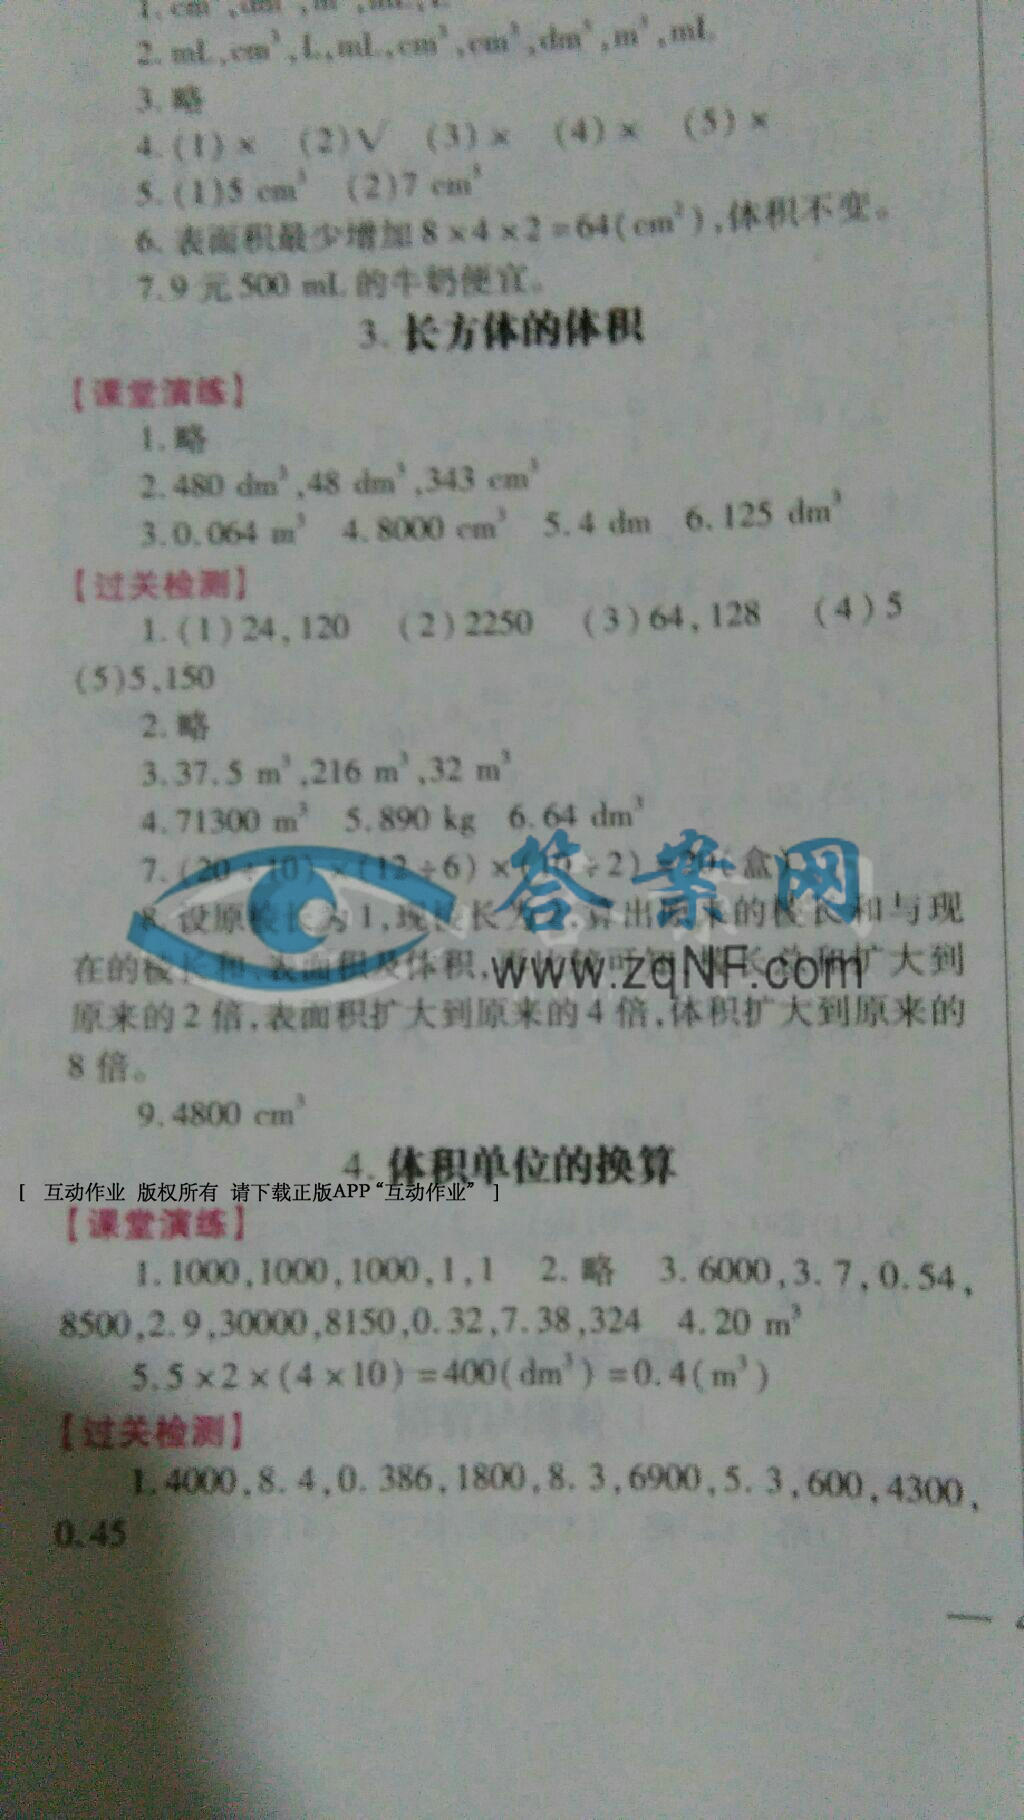 1. cm³,dm³,m³,mL,L
2. mL,cm³,L,mL,cm³,cm³,dm³,m³,mL
3. 略
4. (1)× (2)√ (3)× (4)× (5)×
5. (1)5 cm³ (2)7 cm³
6. 表面积最少增加 8×4×2=64(cm²),体积不变。
7. 9 元 500 mL 的牛奶便宜。
3. 长方体的体积
【课堂演练】
1. 略
2. 480 dm³,48 dm³,343 cm³
3. 0.064 m³ 4. 8000 cm³ 5. 4 dm 6. 125 dm³
【过关检测】
1. (1)24,120 (2)2250 (3)64,128 (4)5
(5)5,150
2. 略
3. 37.5 m³,216 m³,32 m³
4. 71300 m³ 5. 890 kg 6. 64 dm³
7. (20÷10)×(12÷6)×(÷2)=(盒)
答案网
8. 设原棱长为 1,现棱长为算出原来的棱长和与现
在的棱长和、表面积及体积,可知棱长总和扩大到
www.zqNF.com
原来的 2 倍,表面积扩大到原来的 4 倍,体积扩大到原来的
8 倍。
9. 4800 cm³
4. 体积单位的换算
[ 互动作业 版权所有 请下载正版APP“互动作业” ]
【课堂演练】
1. 1000,1000,1000,1,1 2. 略 3. 6000,3.7,0.54,
8500,2.9,30000,8150,0.32,7.38,324 4. 20 m³
5. 5×2×(4×10)=400(dm³)=0.4(m³)
【过关检测】
1. 4000,8.4,0.386,1800,8.3,6900,5.3,600,4300,
0.45